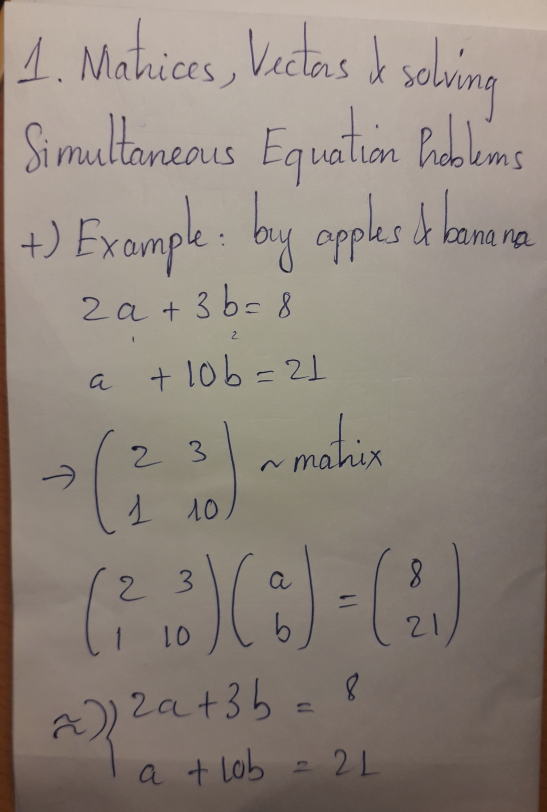 1. Matrices, Vectors & solving
Simultaneous Equation Problems
+) Example: buy apples & banana
2a + 3b = 8
1 2
a + 10b = 21
→ ( 2 3 ) ~ matrix
1 10
( 2 3 ) ( a ) = ( 8 )
1 10 b 21
≈) { 2a + 3b = 8
a + 10b = 21